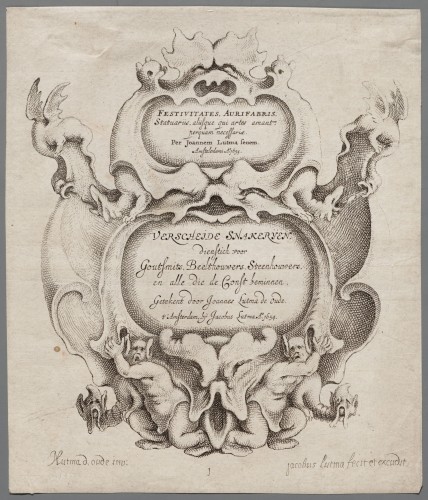 FESTIVITATES AURIFABRIS,
Statuariis, alijsque qui artes amant
perquam necessariæ.
Per Joannem Lutma senem.
Amstelodami Aº 1654.
VERSCHEIDE SNAKERYEN.
dienstich voor
Goutsmits, Beelthouwers, Steenhouwers,
en alle die de Const beminnen,
Geteikent door Joannes Lutma de Oude.
t'Amsterdam, by Jacobus Lutma Aº 1654.
JLutma d. oude inv.
1
jacobus Lutma fecit et excudit.